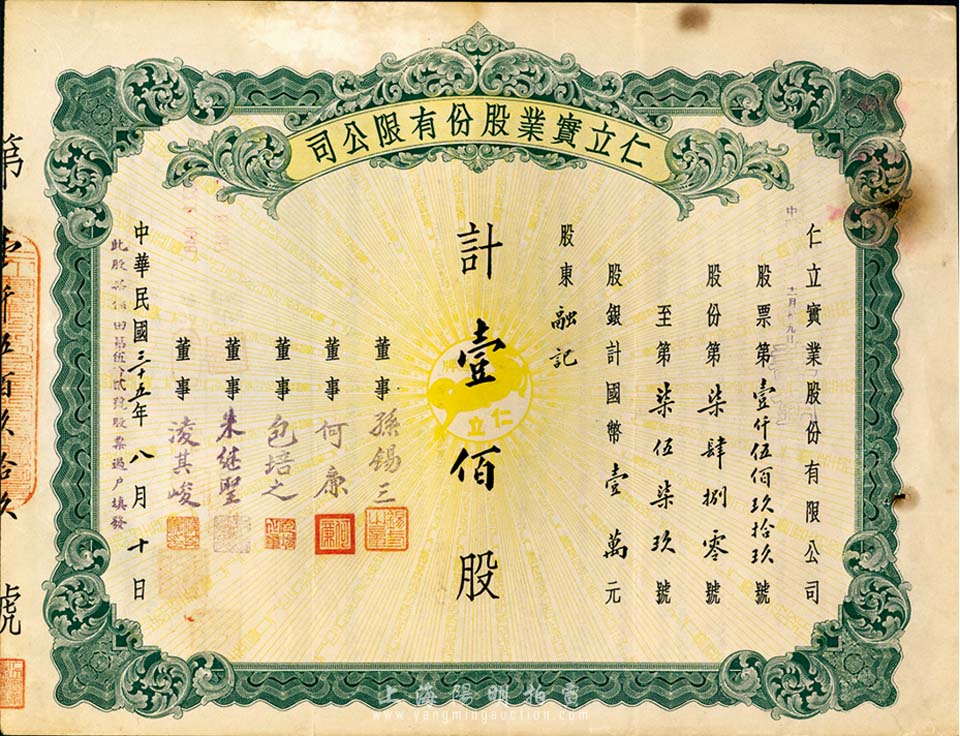 仁立實業股份有限公司
仁立實業股份有限公司
股票第壹仟伍佰玖拾玖號
股份第柒肆捌零號
至第柒伍柒玖號
股銀計國幣壹萬元
股東融記
計壹佰股
仁立
董事孫錫三
董事何廉
董事包培之
董事朱继聖
董事凌其峻
中華民國三十五年八月十日
號股票過户填發
第壹仟伍佰玖拾玖號
上海陽明拍賣
www.yangmingauction.com